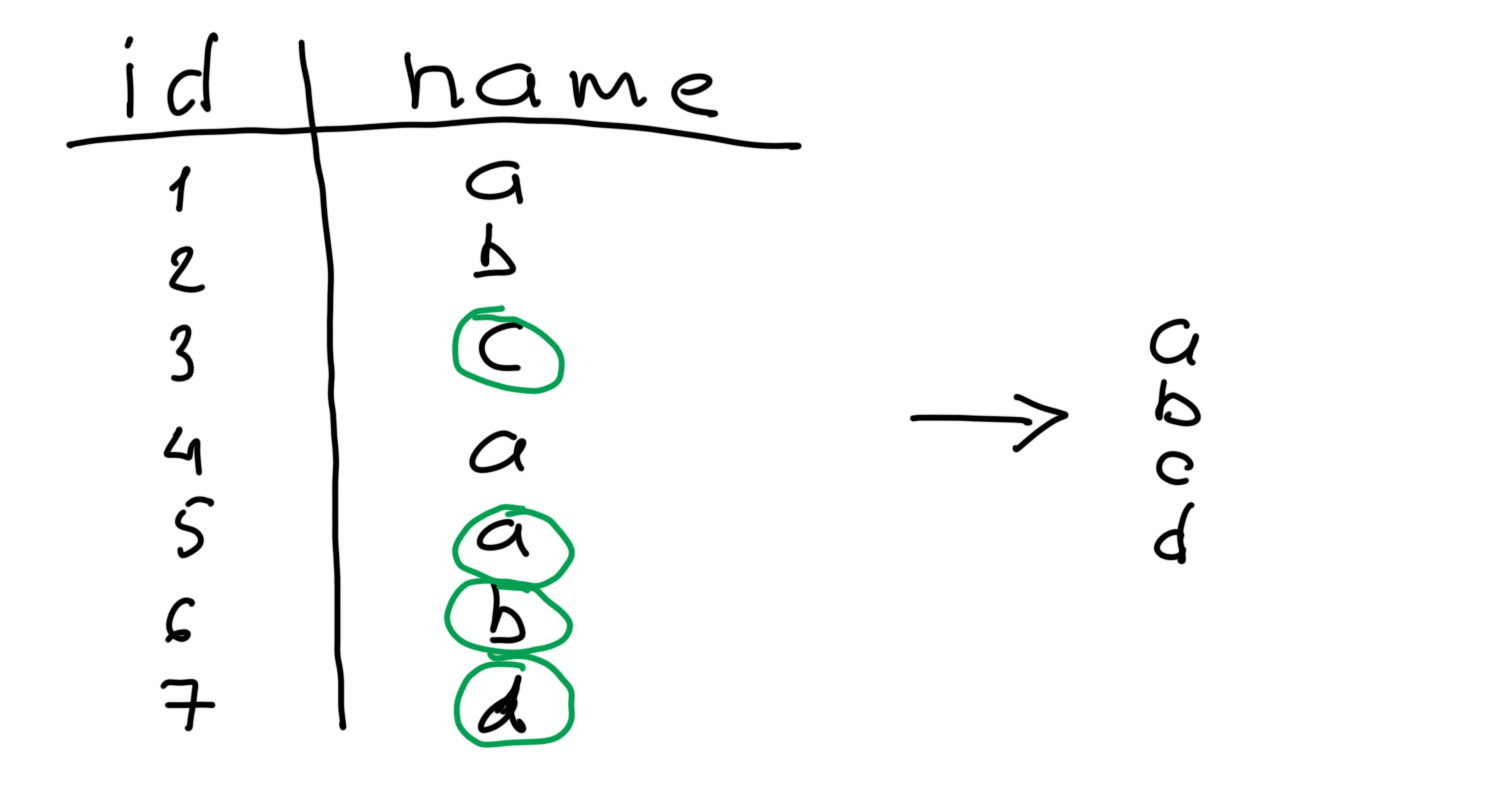 id name
1 a
2 b
3 c
4 a
5 a
6 b
7 d
a
b
c
d